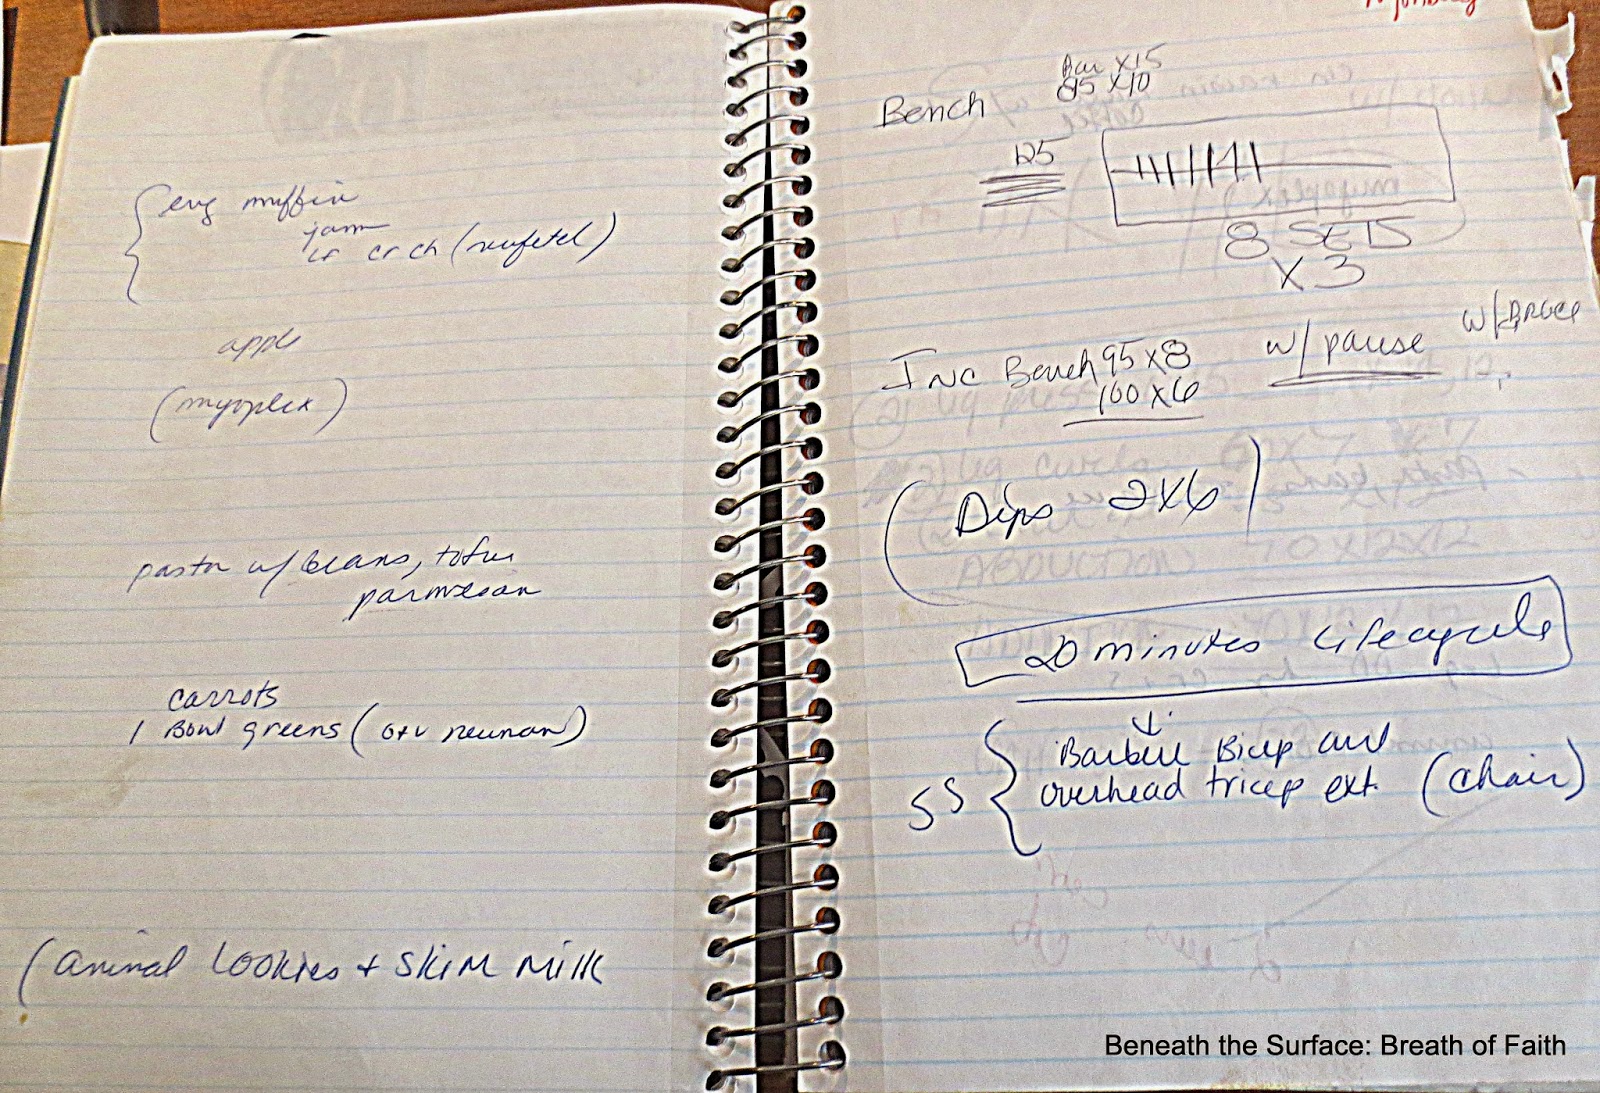 { eng muffin
jam
cr ch (neufetel)
apple
(myoplex)
pasta w/ beans, tofu
parmesan
carrots
1 Bowl greens (o+v neuman)
(animal cookies + skim milk
Monday
Bar x 15
Bench 85 x 10
125
8 SETS
x 3
Inc Bench 95 x 8 w/ pause w/ BRUCE
100 x 6
(Dips 2x6)
20 minutes Lifecycle
SS { Barbell Bicep and
overhead tricep ext. (chair)
Beneath the Surface: Breath of Faith